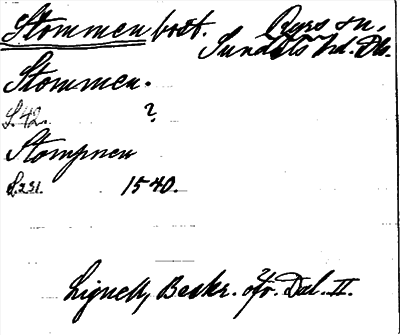 Stommen bost. Ryrs sn.
Sundals hd. Ds.
Stommen.
S. 42. ?
Stompnen
S. 231. 1540.
Lignell, Beskr. öfr. Dal. II.